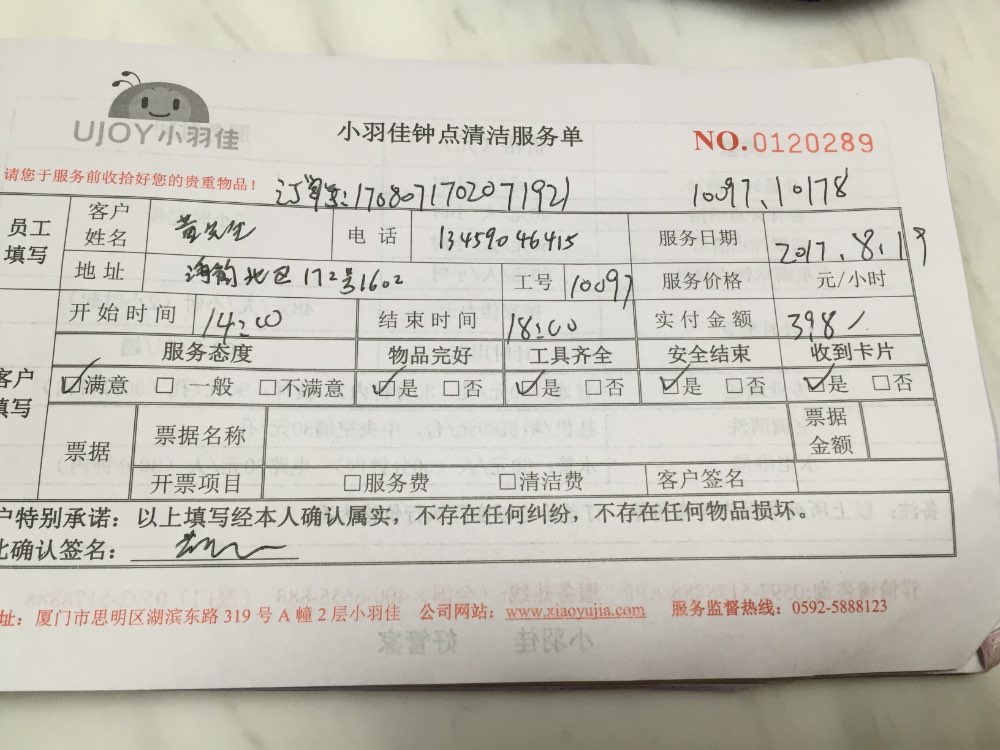 UJOY小羽佳
小羽佳钟点清洁服务单
NO.0120289
请您于服务前收拾好您的贵重物品！
订单号：1708071702071921
10097、10178
员工填写 客户姓名 黄先生 电话 13459046415 服务日期 2017.8.19
地址 海韵北区172号1602 工号 10097 服务价格 元/小时
开始时间 14:00 结束时间 18:00 实付金额 398
客户填写 服务态度 物品完好 工具齐全 安全结束 收到卡片
☑满意 □一般 □不满意 ☑是 □否 ☑是 □否 ☑是 □否 ☑是 □否
票据 票据名称 票据金额
开票项目 □服务费 □清洁费 客户签名
户特别承诺：以上填写经本人确认属实，不存在任何纠纷，不存在任何物品损坏。
此确认签名：
址：厦门市思明区湖滨东路 319 号 A 幢 2 层小羽佳 公司网站：www.xiaoyujia.com 服务监督热线：0592-5888123